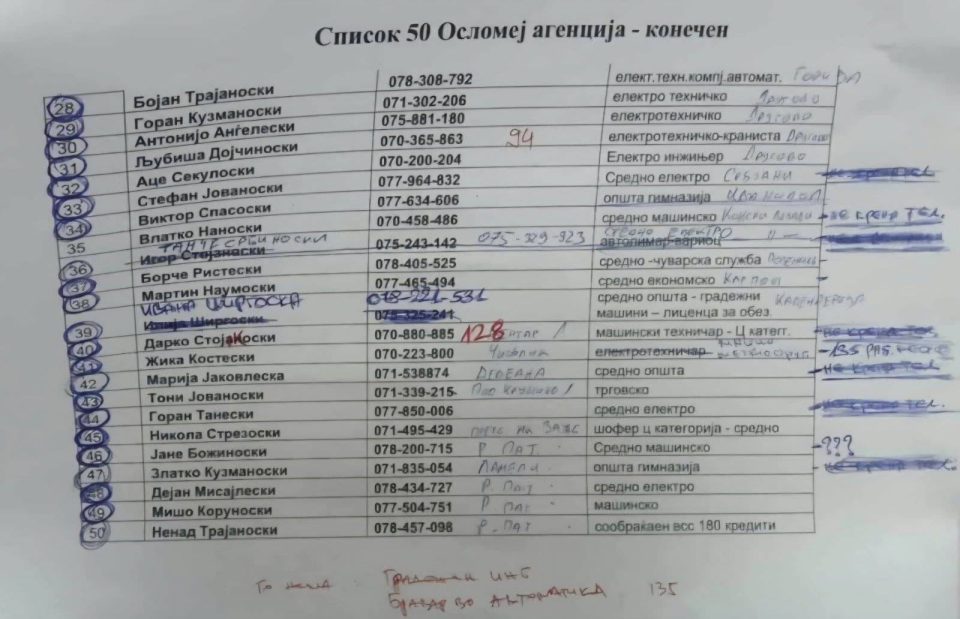 Список 50 Осломеј агенција - конечен
28 Бојан Трајаноски 078-308-792 елект.техн.компј.автомат.
29 Горан Кузманоски 071-302-206 електро техничко Другово
30 Антонијо Анѓелески 075-881-180 електротехничко Другово
31 Љубиша Дојчиноски 070-365-863 94 електротехничко-краниста Другово
32 Аце Секулоски 070-200-204 Електро инжињер Другово
33 Стефан Јованоски 077-964-832 Средно електро Србјани - не крена тел.
34 Виктор Спасоски 077-634-606 општа гимназија
35 Влатко Наноски 070-458-486 средно машинско - не крена тел.
36 Игор Стојаноски 075-243-142 075-329-823 средно електро автолимар-вариоц
37 Борче Ристески 078-405-525 средно -чуварска служба
38 Мартин Наумоски 077-465-494 средно економско Карпош
39 Ивана Ширгоска Илија Ширгоски 078-221-531 075-325-241 средно општа - градежни машини – лиценца за обез.
40 Дарко Стојаноски 070-880-885 128 Центар машински техничар - Ц катег. - не крена тел.
41 Жика Костески 070-223-800 електротехничар
42 Марија Јаковлеска 071-538874 средно општа - не крена тел.
43 Тони Јованоски 071-339-215 трговско
44 Горан Танески 077-850-006 средно електро - не крена тел.
45 Никола Стрезоски 071-495-429 шофер ц категорија - средно
46 Јане Божиноски 078-200-715 Р. Пат. Средно машинско - ???
47 Златко Кузманоски 071-835-054 општа гимназија - не крена тел.
48 Дејан Мисајлески 078-434-727 Р. Пат. средно електро
49 Мишо Коруноски 077-504-751 Р. Пат машинско
50 Ненад Трајаноски 078-457-098 Р. Пат сообраќаен всс 180 кредити
135